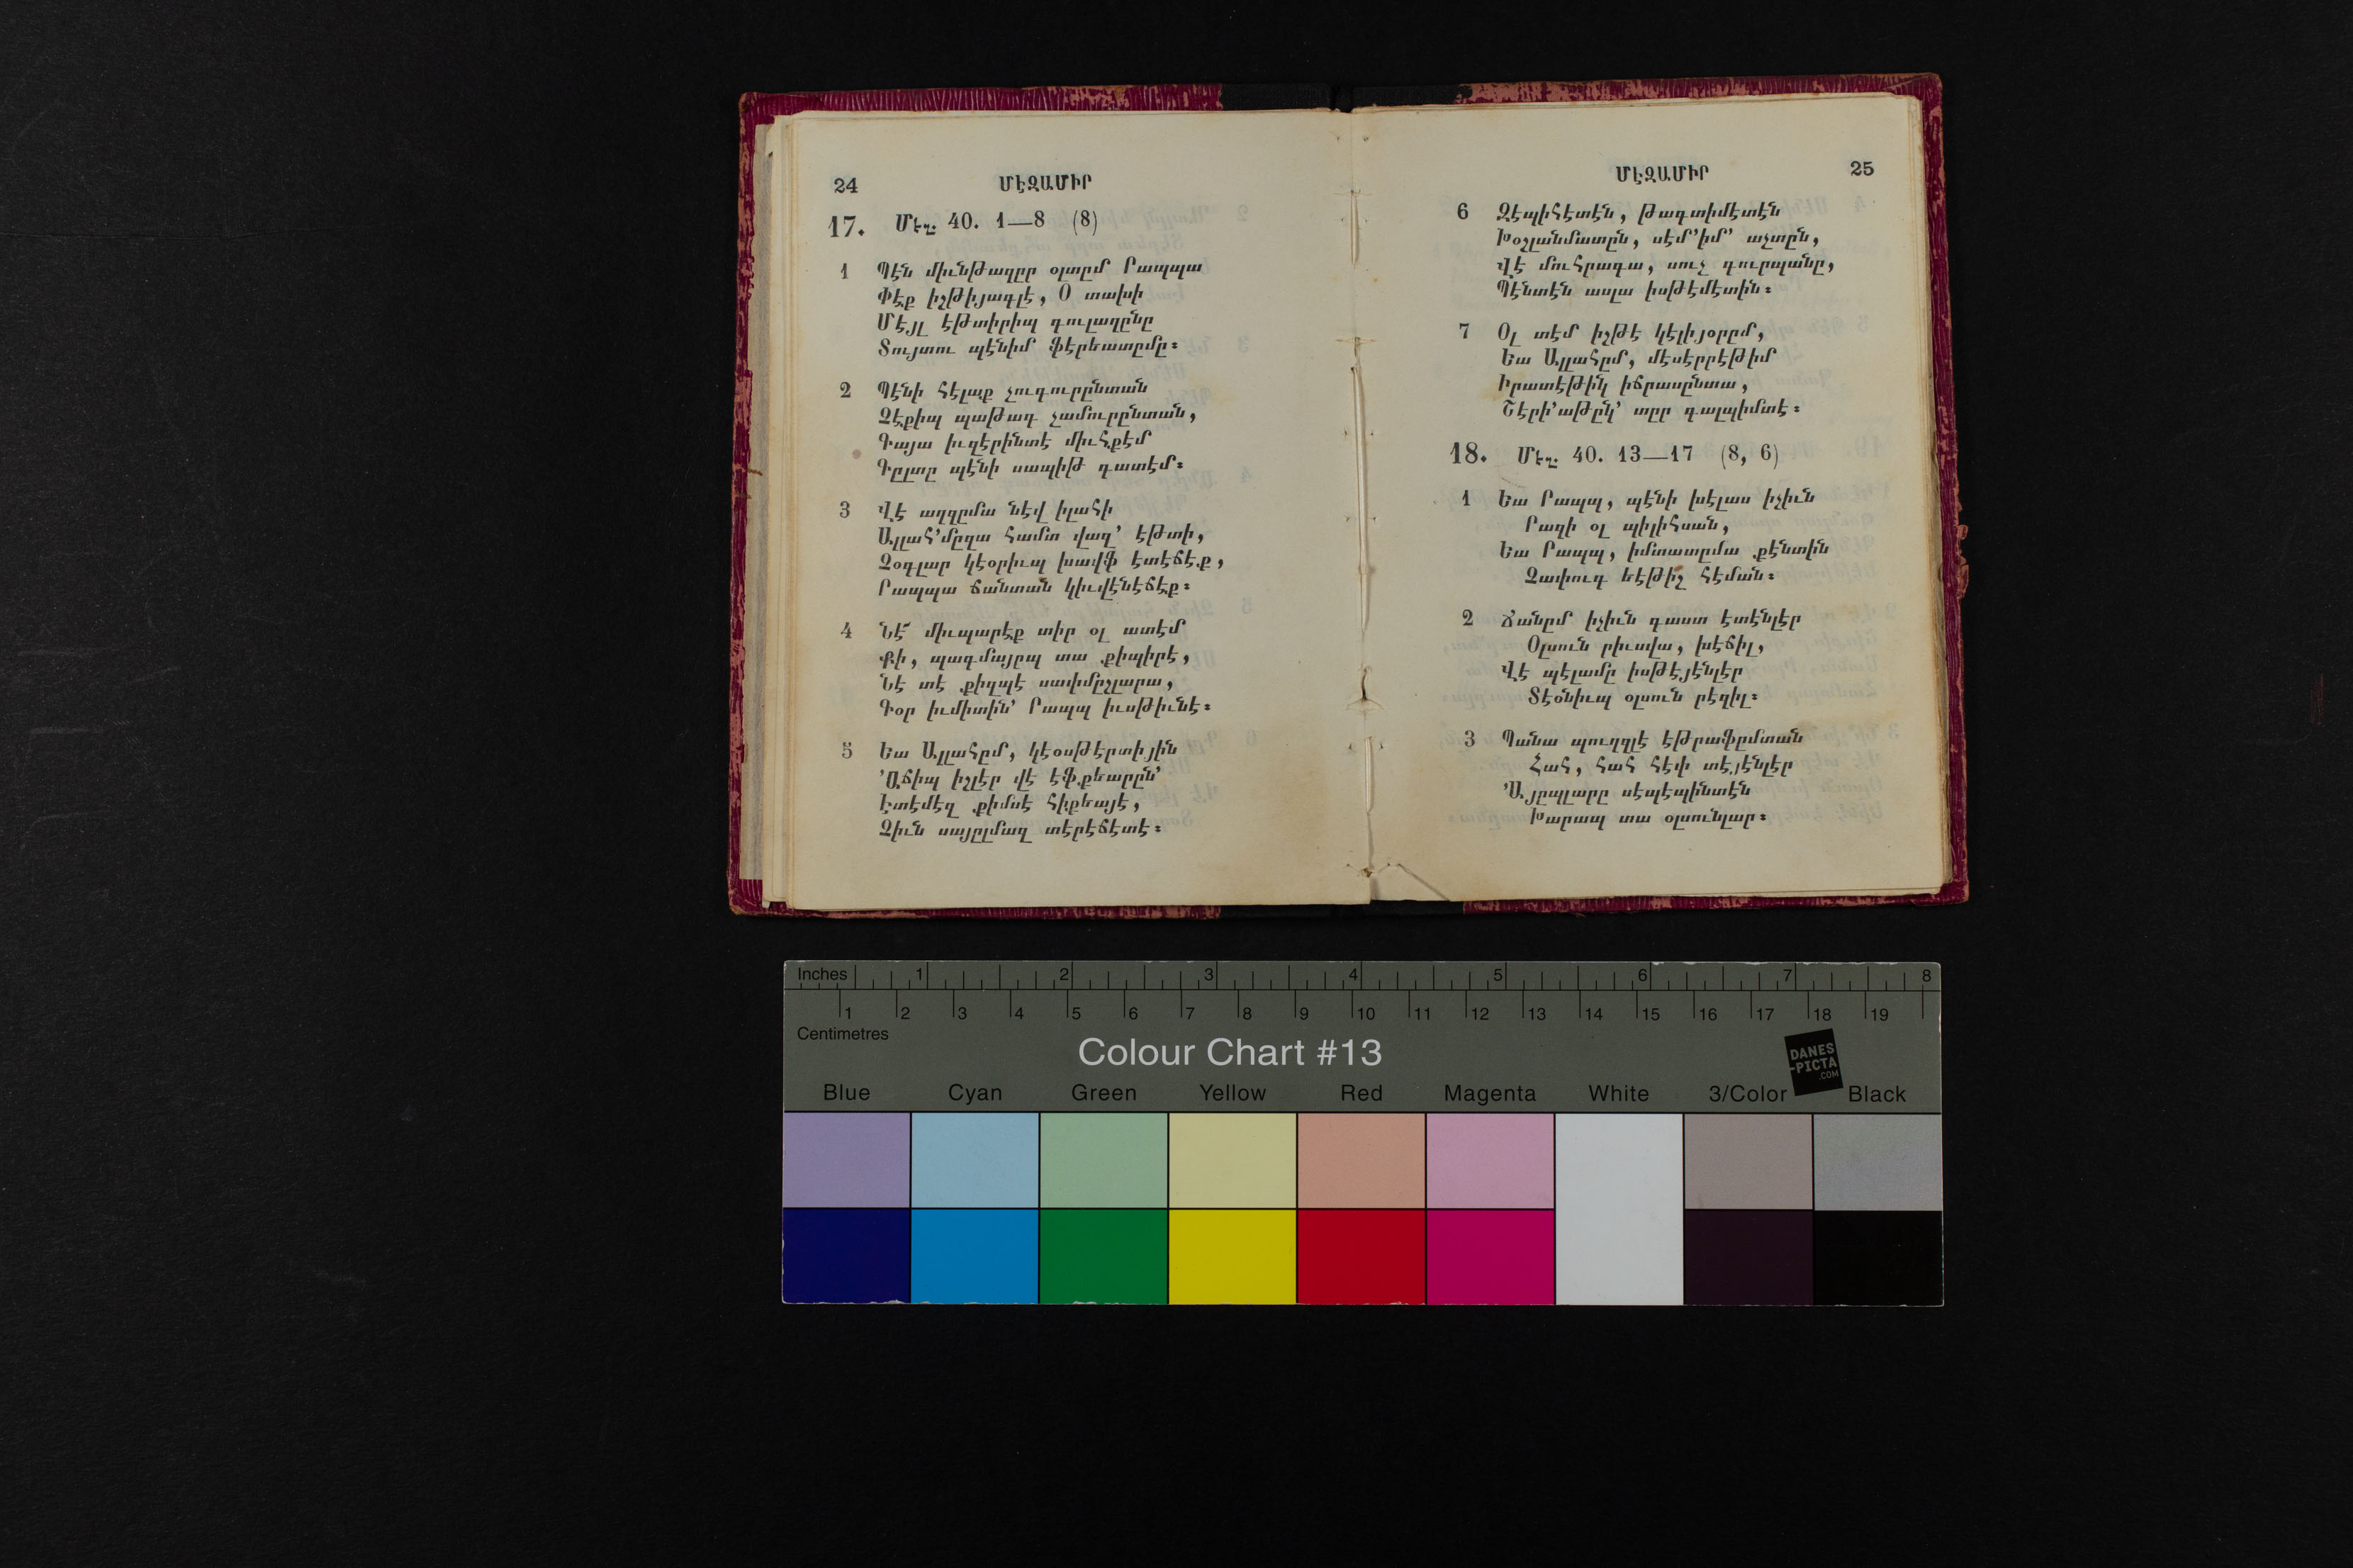 24
ՄԷԶԱՄԻՐ
17. Մէզ. 40. 1—8 (8)
1 Պէն միւնթազըր օլտըմ Րապպա
Փէք իչթիյագլէ, Օ տախի
Մէյլ էթտիրիպ գուլաղընը
Տույտու պէնիմ ֆէրեատըմը։
2 Պէնի հէլաք չուգուրընտան
Չէքիպ պաթագ չամուրընտան,
Գայա իւզէրինտէ միւհքէմ
Գըլտը պէնի սապիթ գատէմ։
3 Վէ աղզըմա նէվ իլահի
Ալլահ՚մըզա համտ վազ՚ էթտի,
Չօգլար կէօրիւպ խավֆ էտէճէք,
Րապպա ճանտան կիւվէնէճէք։
4 Նէ՜ միւպարէք տիր օլ ատէմ
Քի, պագմայըպ տա քիպիրէ,
Նէ տէ քիզպէ սափմըշլարա,
Գօր իւմիտին՚ Րապպ իւսթիւնէ։
5 Եա Ալլահըմ, կէօսթէրտիյին
՚Աճիպ իշլէր վէ էֆքեարըն՚
Էտէմէզ քիմսէ հիքեայէ,
Չիւն սայըլմազ տէրէճէտէ։
ՄԷԶԱՄԻՐ
25
6 Զէպիհէտէն, թագտիմէտէն
Խօշլանմատըն, սէմ՚իմ՚ աչտըն,
Վէ մուհրագա, սուչ գուրպանը,
Պէնտէն ասլա իսթէմէտին։
7 Օլ տէմ իշթէ կէլիյօրըմ,
Եա Ալլահըմ, մէսէրրէթիմ
Իրատէթինկ իճրասընտա,
Շէրի՚աթընկ՚ տըր գալպիմտէ։
18. Մէզ. 40. 13—17 (8, 6)
1 Եա Րապպ, պէնի խէլաս իչիւն
Րազի օլ պիլիհսան,
Եա Րապպ, իմտատըմա քէնտին
Չափուգ եէթիշ հէման։
2 Ճանըմ իչիւն գաստ էտէնլէր
Օլսուն րիւսվա, խէճիլ,
Վէ պէլամը իսթէյէնլէր
Տէօնիւպ օլսուն րէզիլ։
3 Պանա պուղզլէ էթրաֆըմտան
Հահ, հահ հէփ տէյէնլէր
՚Այըպլարը սէպէպինտէն
Խարապ տա օլսունլար։
Inches 1 2 3 4 5 6 7 8
1 2 3 4 5 6 7 8 9 10 11 12 13 14 15 16 17 18 19
Centimetres
Colour Chart #13
DANES
-PICTA
.COM
Blue Cyan Green Yellow Red Magenta White 3/Color Black